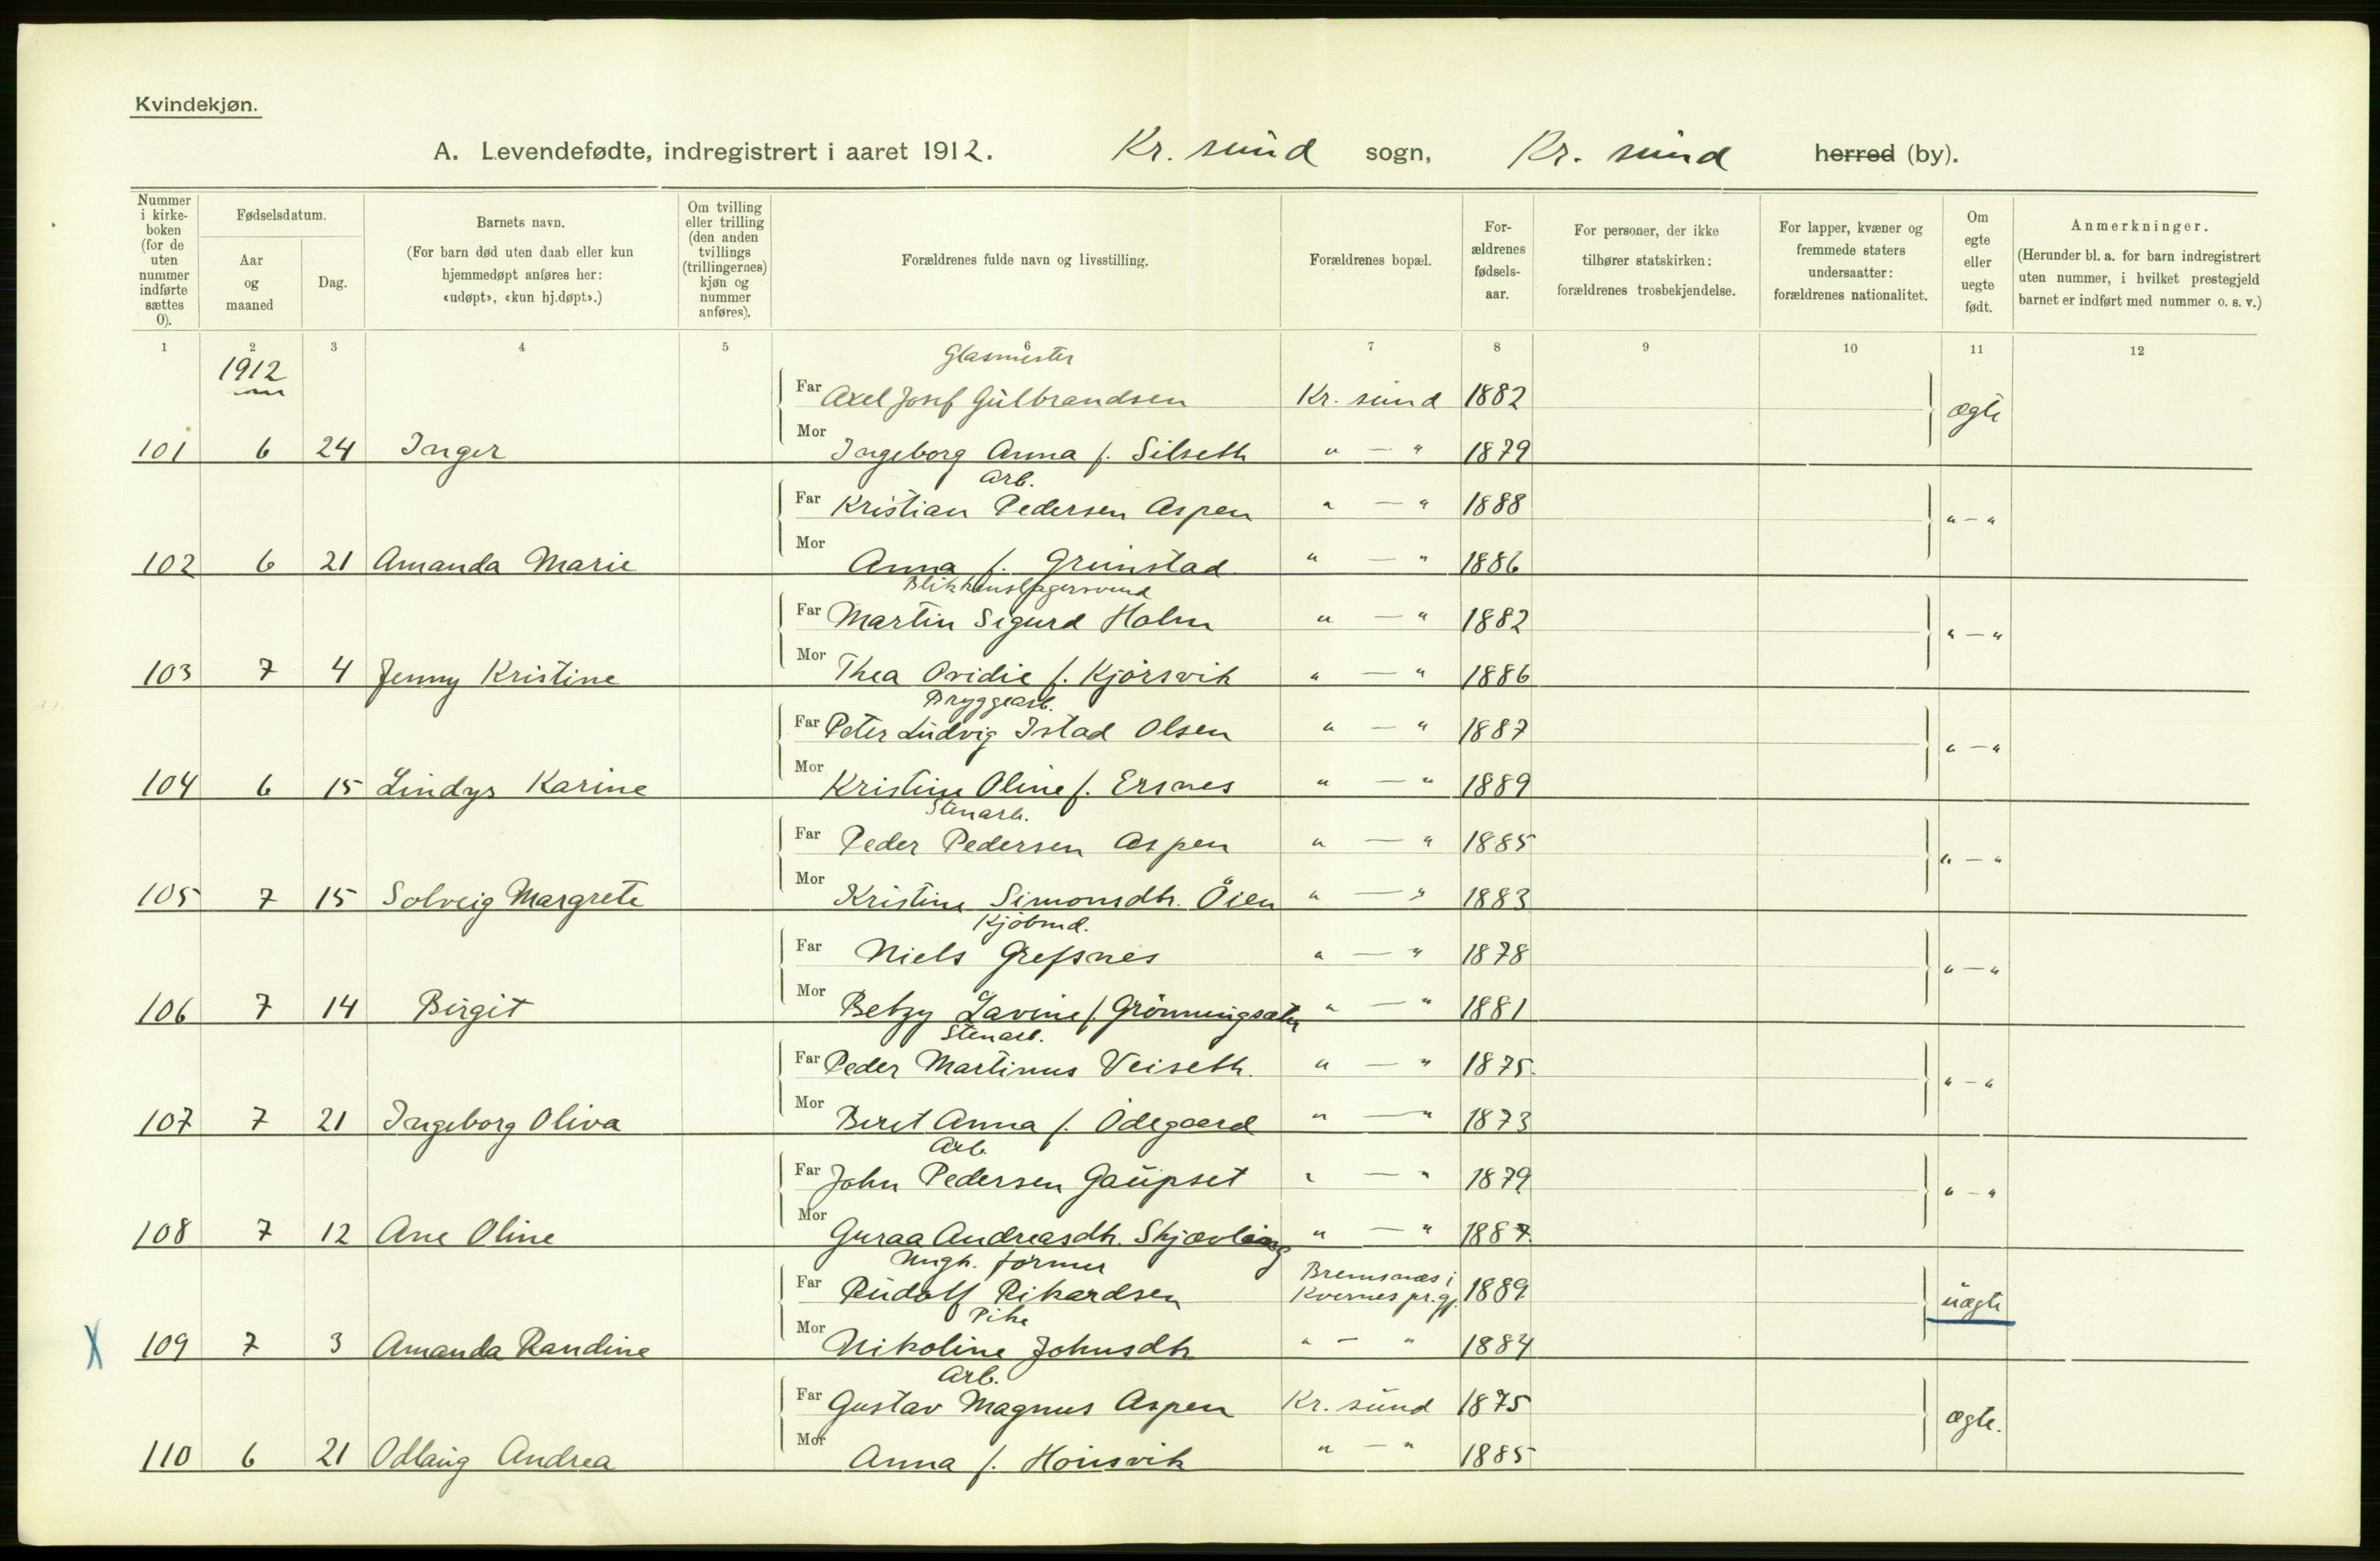 Kvindekjøn.
A. Levendefødte, indregistrert i aaret 1912. Kr. sund sogn, Kr. sund herred (by).
Nummer i kirke-boken (for de uten nummer indførte sættes 0).
Fødselsdatum.
Aar og maaned
Dag.
Barnets navn.
(For barn død uten daab eller kun hjemmedøpt anføres her: «udøpt», «kun hj.døpt».)
Om tvilling eller trilling (den anden tvillings (trillingernes) kjøn og nummer anføres).
Forældrenes fulde navn og livsstilling.
Forældrenes bopæl.
For-ældrenes fødsels-aar.
For personer, der ikke tilhører statskirken: forældrenes trosbekjendelse.
For lapper, kvæner og fremmede staters undersaatter: forældrenes nationalitet.
Om egte eller uegte født.
Anmerkninger.
(Herunder bl. a. for barn indregistrert uten nummer, i hvilket prestegjeld barnet er indført med nummer o. s. v.)
1 2 3 4 5 6 7 8 9 10 11 12
1912
Glasmester
Far Axel Josef Gulbrandsen Kr. sund 1882 ægte
101 6 24 Inger Mor Ingeborg Anna f. Silseth " — " 1879
Arb.
Far Kristian Pedersen Aspen " — " 1888 " — "
102 6 21 Amanda Marie Mor Anna f. Grimstad " — " 1886
Blikkenslagersvend
Far Martin Sigurd Holm " — " 1882 " — "
103 7 4 Jenny Kristine Mor Thea Ovidie f. Kjörsvik " — " 1886
Bryggearb.
Far Peter Ludvig Istad Olsen " — " 1887 " — "
104 6 15 Lindys Karine Mor Kristine Oline f. Ersnes " — " 1889
Stenarb.
Far Peder Pedersen Aspen " — " 1885 " — "
105 7 15 Solveig Margrete Mor Kristine Simonsdtr. Öien " — " 1883
Kjöbmd.
Far Niels Grefsnes " — " 1878 " — "
106 7 14 Birgit Mor Betzy Lavine f. Grönningsæter " — " 1881
Stenarb.
Far Peder Martinus Veiseth. " — " 1875. " — "
107 7 21 Ingeborg Oliva Mor Beret Anna f. Ödegaard " — " 1873
Arb.
Far John Pedersen Gaupset " — " 1879 " — "
108 7 12 Ane Oline Mor Guraa Andreasdtr. Skjævling " — " 1887
Ungk. former Bremsnes i
Far Rudolf Rikardsen Kvernes pr.gj. 1889 uægte
Pike
X 109 7 3 Amanda Randine Mor Nikoline Johnsdtr " — " 1884
Arb.
Far Gustav Magnus Aspen Kr. sund 1875 ægte.
110 6 21 Odlaug Andrea Mor Anna f. Honsvik " — " 1885